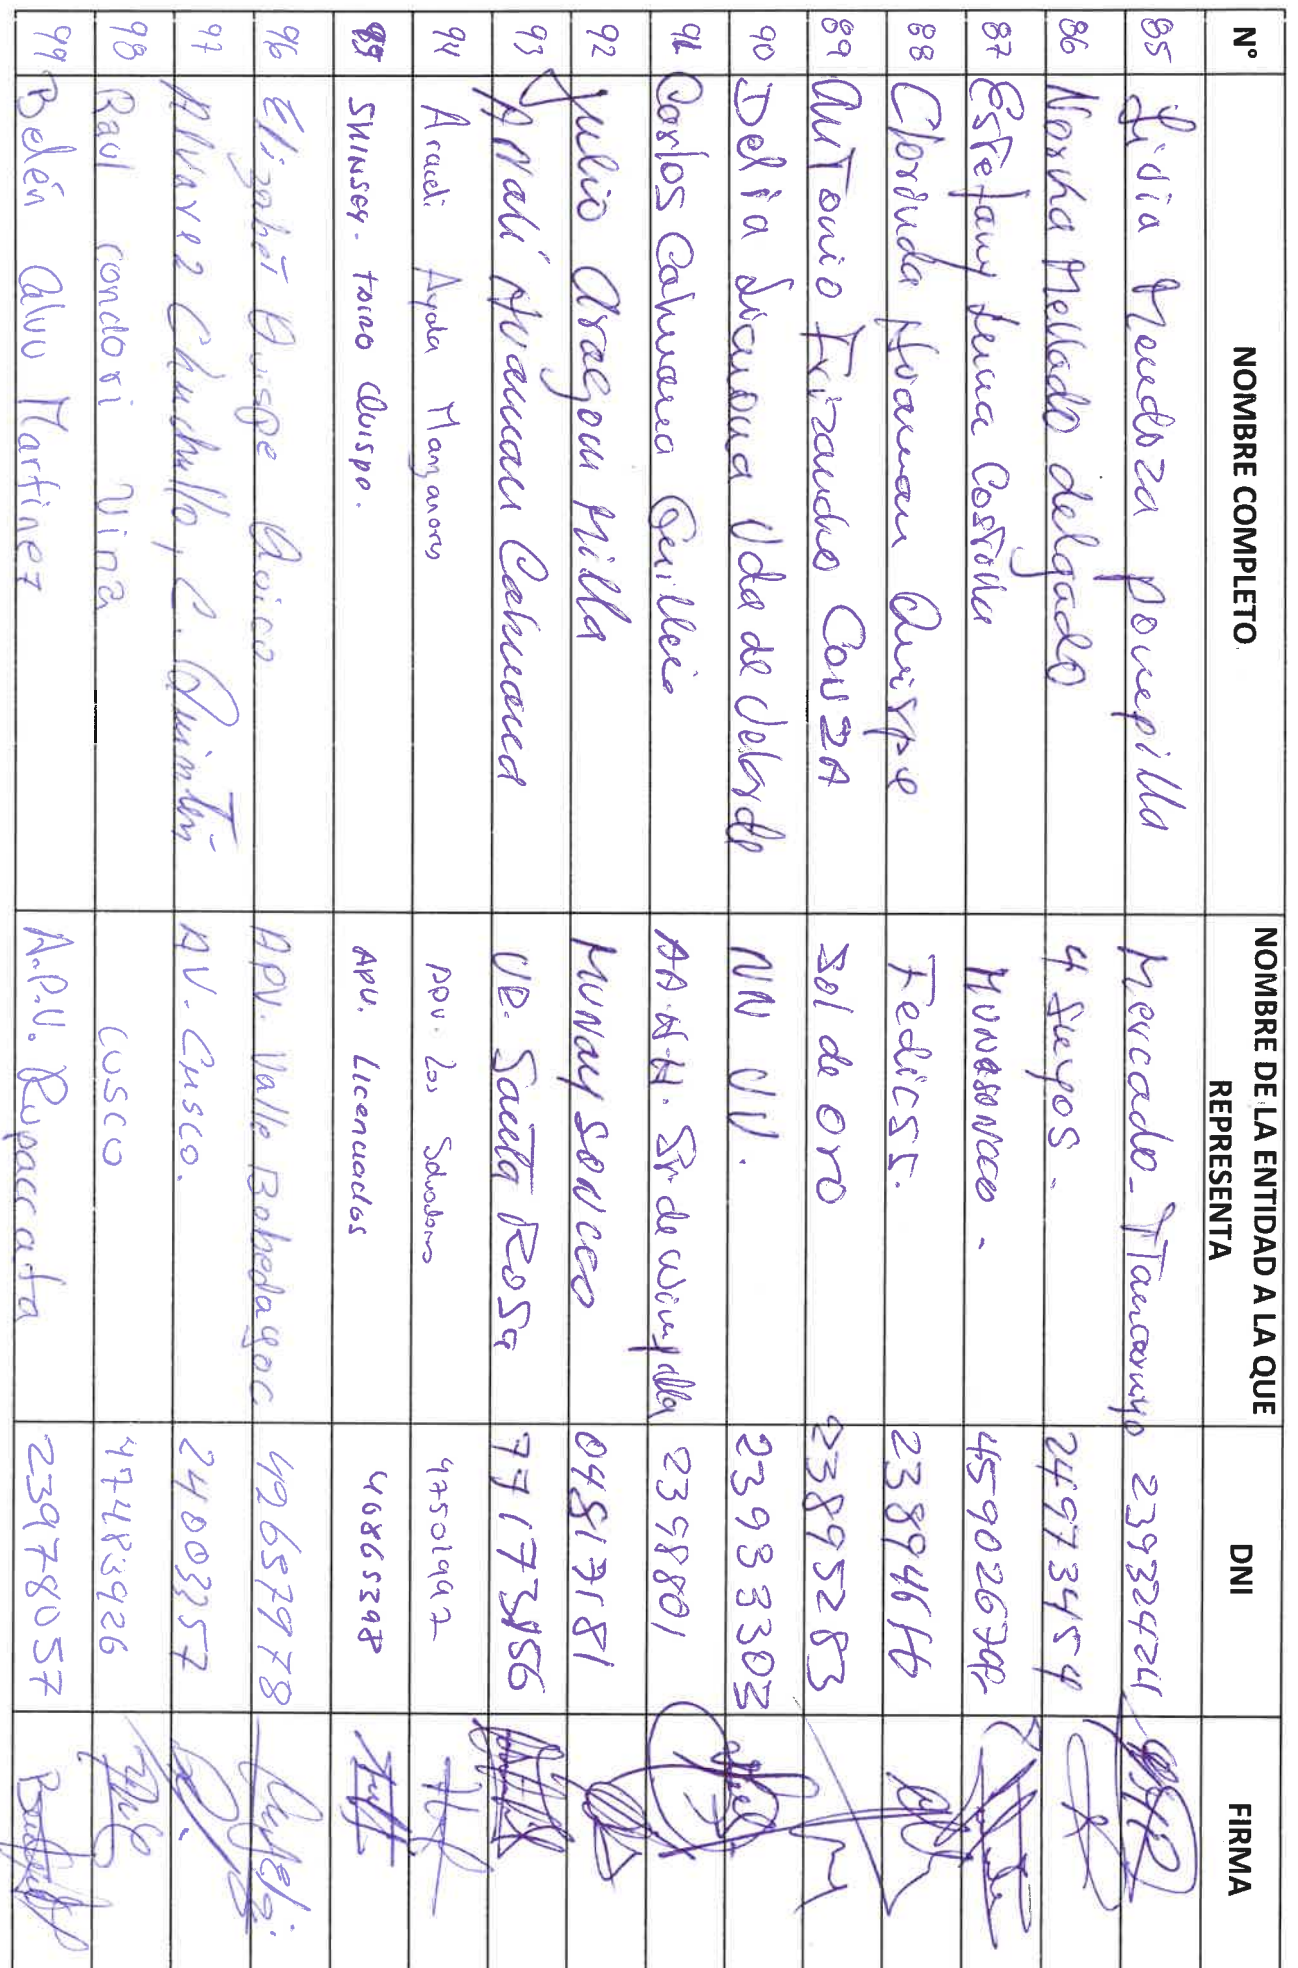 N° NOMBRE COMPLETO NOMBRE DE LA ENTIDAD A LA QUE REPRESENTA DNI FIRMA
85 Livia Mendoza Poucepilla Mercado Ttancarmayo 23932424
86 Norka Mellado delgado 4 Suyos. 24973454
87 Estefany Lema Munasoncco - 45902674
88 Clorinda Huaman Quispe Fedicss. 238946
89 Antonio Frizancho Conza Sol de Oro 23895283
90 Delia Licuona Vda de Velarde NN UU. 23933303
91 Carlos Cahuana AA.HH. Sr de Wimpilla 2398801
92 Julio Aragon Milla Munay Soncco 04817181
93 Analí Huaman Cahuana UP. Santa Rosa 77173156
94 Araceli Ayala Manzanares APV. Los 47501997
95 Shinsey. Quispe. APV. Licenciados 40865398
96 Elizabet Quispe Quico APV. Valle 42657978
97 Alvarez Chuchullo, C. Quintín AV. Cusco. 24003357
98 Raul condori Vina cusco 47483926
99 Belén Calvo Martinez A.P.V. Rupaccata 23978057